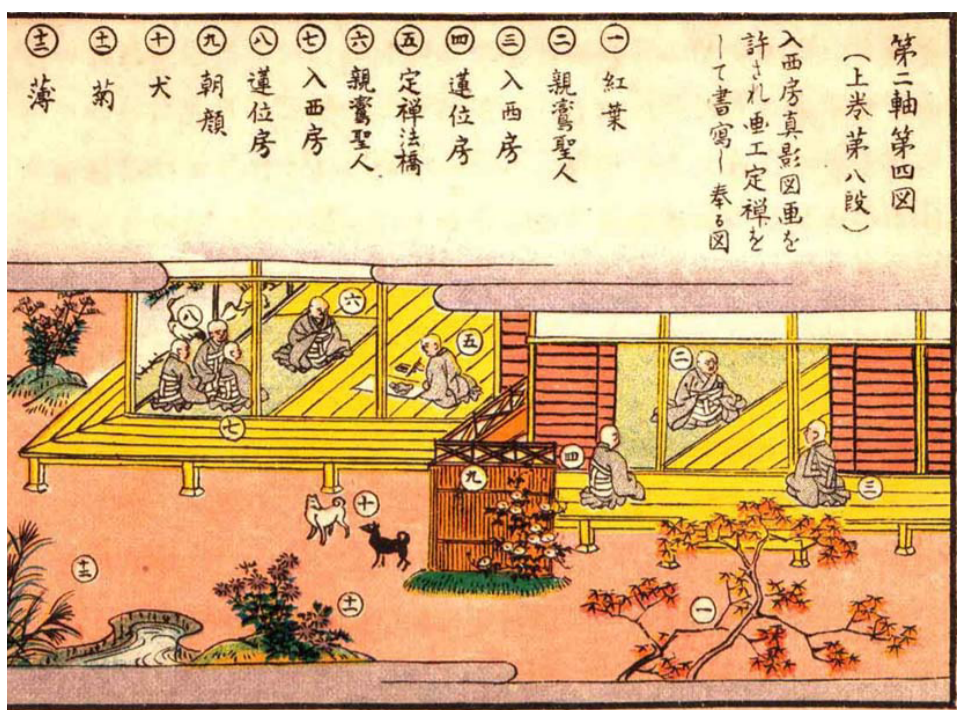 第二軸第四図
（上巻第八段）
入西房真影図画を
許され画工定禅を
して書写し奉る図
㊀ 紅葉
㊁ 親鸞聖人
㊂ 入西房
㊃ 蓮位房
㊄ 定禅法橋
㊅ 親鸞聖人
㊆ 入西房
㊇ 蓮位房
㊈ 朝顔
㊉ 犬
十一 菊
十二 薄
八
六
五
二
七
九
四
三
十
十二
十一
一